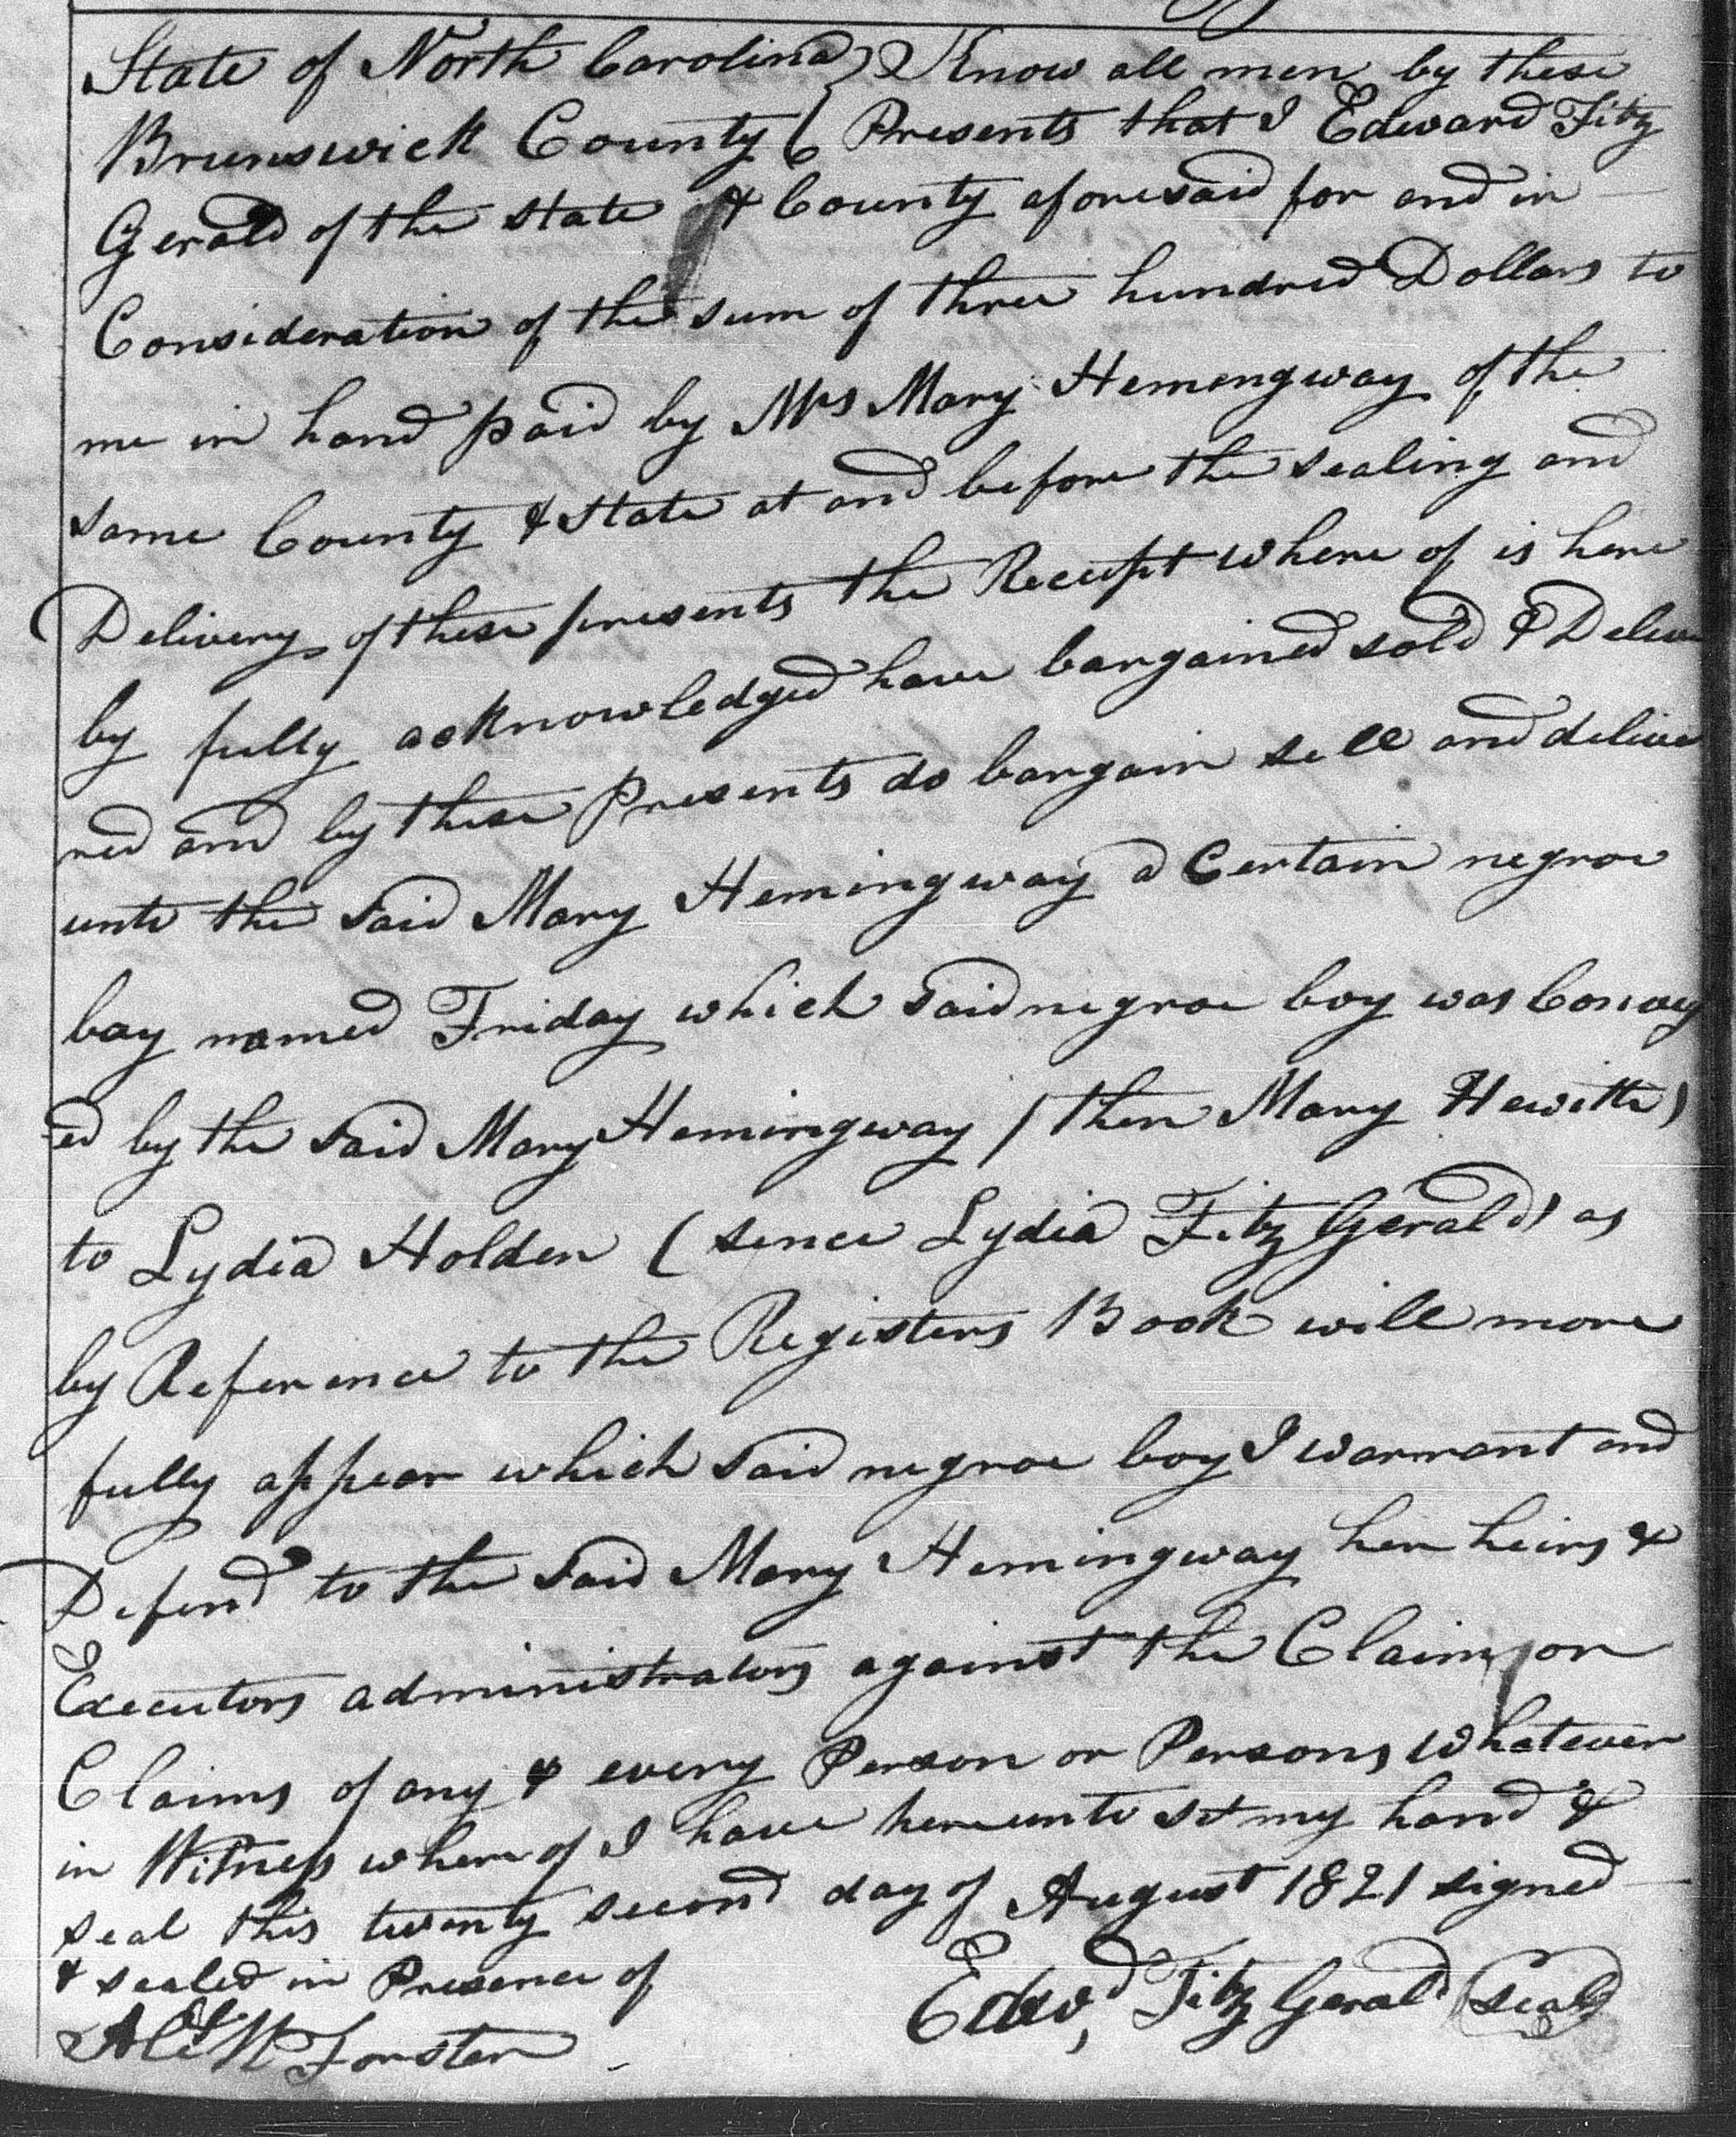 State of North Carolina } Know all men by these
Brunswick County { Presents that I Edward Fitz
Gerald of the state & County aforesaid for and in
Consideration of the sum of three hundred Dollars to
me in hand paid by Mrs Mary Hemengway of the
same County & state at and before the sealing and
Delivery of these presents the Receipt where of is here
by fully acknowledged have bargained sold & Delive
red and by these Presents do bargain sell and deliver
unto the said Mary Hemingway a Certain negroe
boy named Friday which said negroe boy was Convey
ed by the said Mary Hemingway / then Mary Hewitte)
to Lydia Holden ( sence Lydia Fitz Gerald) as
by Reference to the Registers Book will more
fully appear which said negroe boy I warrant and
Defend to the said Mary Hemingway her heirs &
Executors administrators against the Claim or
Claims of any & every Person or Persons Whatever
in Witness where of I have hereunto set my hand &
seal this twenty second day of August 1821 signed
& sealed in Presence of
Edwd, Fitz Gerald (Seal)
Forster